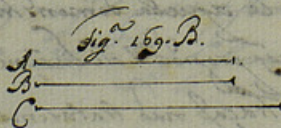 Fig.ª 169. B.
A
B
C